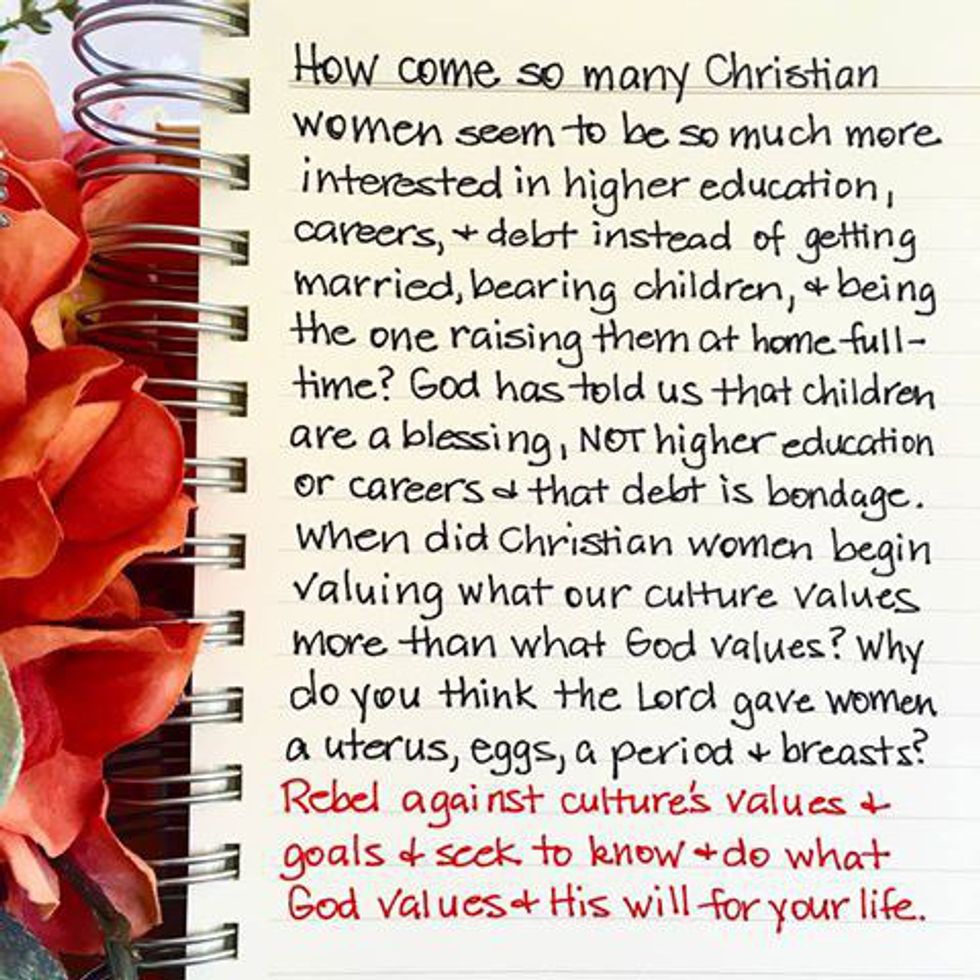 How come so many Christian
women seem to be so much more
interested in higher education,
careers, + debt instead of getting
married, bearing children, + being
the one raising them at home full-
time? God has told us that children
are a blessing, NOT higher education
or careers + that debt is bondage.
When did Christian women begin
valuing what our culture values
more than what God values? Why
do you think the Lord gave women
a uterus, eggs, a period + breasts?
Rebel against culture's values +
goals + seek to know + do what
God values + His will for your life.